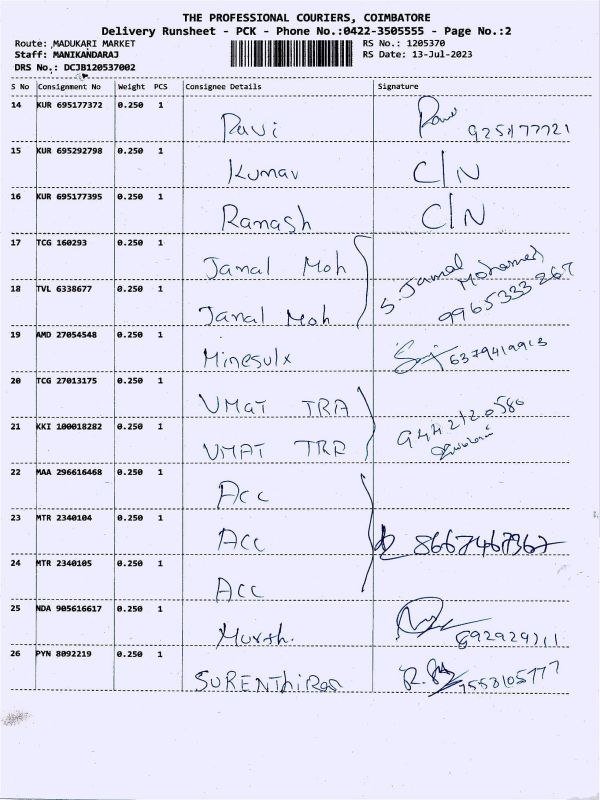 THE PROFESSIONAL COURIERS, COIMBATORE
Delivery Runsheet - PCK - Phone No.:0422-3505555 - Page No.:2
Route: MADUKARI MARKET RS No.: 1205370
Staff: MANIKANDARAJ RS Date: 13-Jul-2023
DRS No.: DCJB120537002
S No Consignment No Weight PCS Consignee Details Signature
14 KUR 695177372 0.250 1 Ravi
15 KUR 695292798 0.250 1 Kumar C/N
16 KUR 695177395 0.250 1 Ramash C/N
17 TCG 160293 0.250 1 Jamal Moh
S. Jamal Mohamed
18 TVL 6338677 0.250 1 Jamal Moh
9965333267
19 AMD 27054548 0.250 1 Minesulx 6379419913
20 TCG 27013175 0.250 1 VMAT TRA
9442120580
21 KKI 100018282 0.250 1 VMAT TRP
22 MAA 296616468 0.250 1 Acc
23 MTR 2340104 0.250 1 Acc 8667467367
24 MTR 2340105 0.250 1 Acc
25 NDA 905616617 0.250 1 Murth.
26 PYN 8092219 0.250 1 SURENThiRan